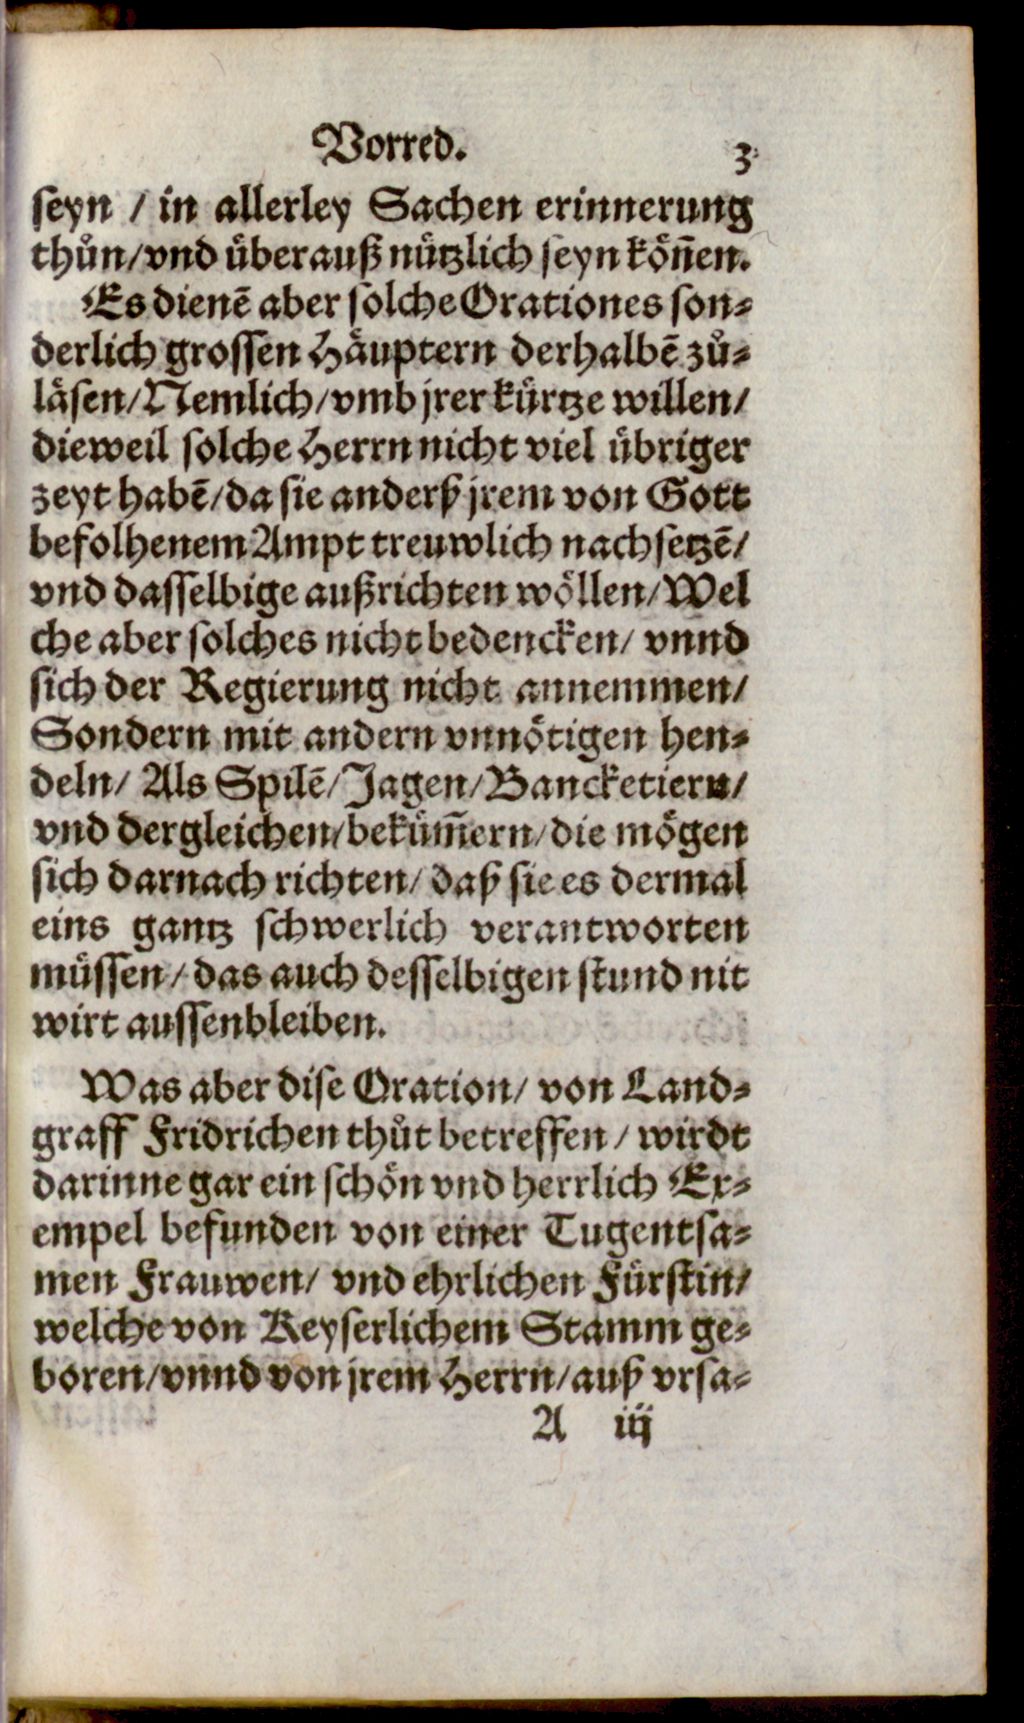 Vorred. 3
seyn / in allerley Sachen erinnerung
thůn/vnd uͤberauß nuͤtzlich seyn koͤn̄en.
Es dienē aber solche Orationes son⸗
derlich grossen Haͤuptern derhalbē zů⸗
laͤsen/Nemlich/vmb jrer kuͤrtze willen/
dieweil solche Herrn nicht viel uͤbriger
zeyt habē/da sie anderß jrem von Gott
befolhenem Ampt treuwlich nachsetzē/
vnd dasselbige außrichten woͤllen/Wel
che aber solches nicht bedencken/ vnnd
sich der Regierung nicht annemmen/
Sondern mit andern vnnoͤtigen hen⸗
deln/ Als Spilē/Jagen/Bancketiern/
vnd dergleichen/bekuͤm̄ern/die moͤgen
sich darnach richten/ daß sie es dermal
eins gantz schwerlich verantworten
muͤssen/das auch desselbigen stund nit
wirt aussenbleiben.
Was aber dise Oration/ von Land⸗
graff Fridrichen thůt betreffen / wirdt
darinne gar ein schoͤn vnd herrlich Ex⸗
empel befunden von einer Tugentsa⸗
men Frauwen/ vnd ehrlichen Fuͤrstin/
welche von Keyserlichem Stamm ge⸗
boren/vnnd von jrem Herrn/auß vrsa⸗
A iij